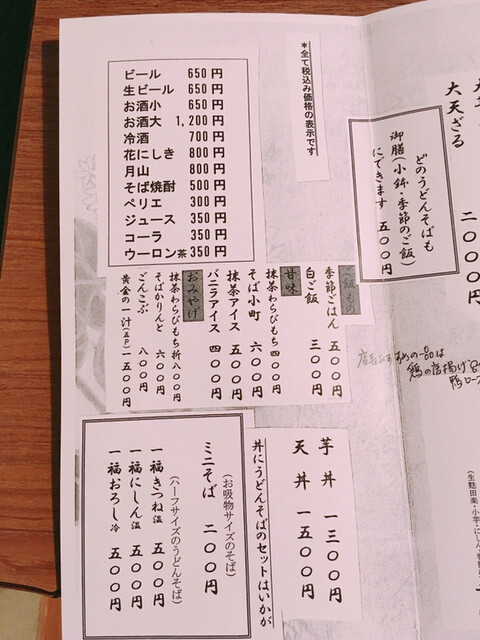 大天ざる 二〇〇〇
どのうどんそばも
御膳(小鉢・季節のご飯)
にできます 五〇〇円
＊全て税込み価格の表示です
ビール 650円
生ビール 650円
お酒小 650円
お酒大 1,200円
冷酒 700円
花にしき 800円
月山 800円
そば焼酎 500円
ペリエ 300円
ジュース 350円
コーラ 350円
ウーロン茶 350円
ご飯もの
季節ごはん 五〇〇円
白ご飯 三〇〇円
甘味
抹茶わらびもち 四〇〇円
そば小町 六〇〇円
抹茶アイス 五〇〇円
バニラアイス 四〇〇円
おみやげ
抹茶わらびもち 折 八〇〇円
そばかりんと 六〇〇円
ごんこぶ 八〇〇円
黄金の一汁(五P) 一五〇〇円
芋丼 一三〇〇円
天丼 一五〇〇円
丼にうどんそばのセットはいかが
(お吸物サイズのそば)
ミニそば 二〇〇円
(ハーフサイズのうどんそば)
一福きつね 温 五〇〇円
一福にしん 温 五〇〇円
一福おろし 冷 五〇〇円
は
鶏の唐揚げ
鴨ロー
(生麩田楽・小芋・にしん